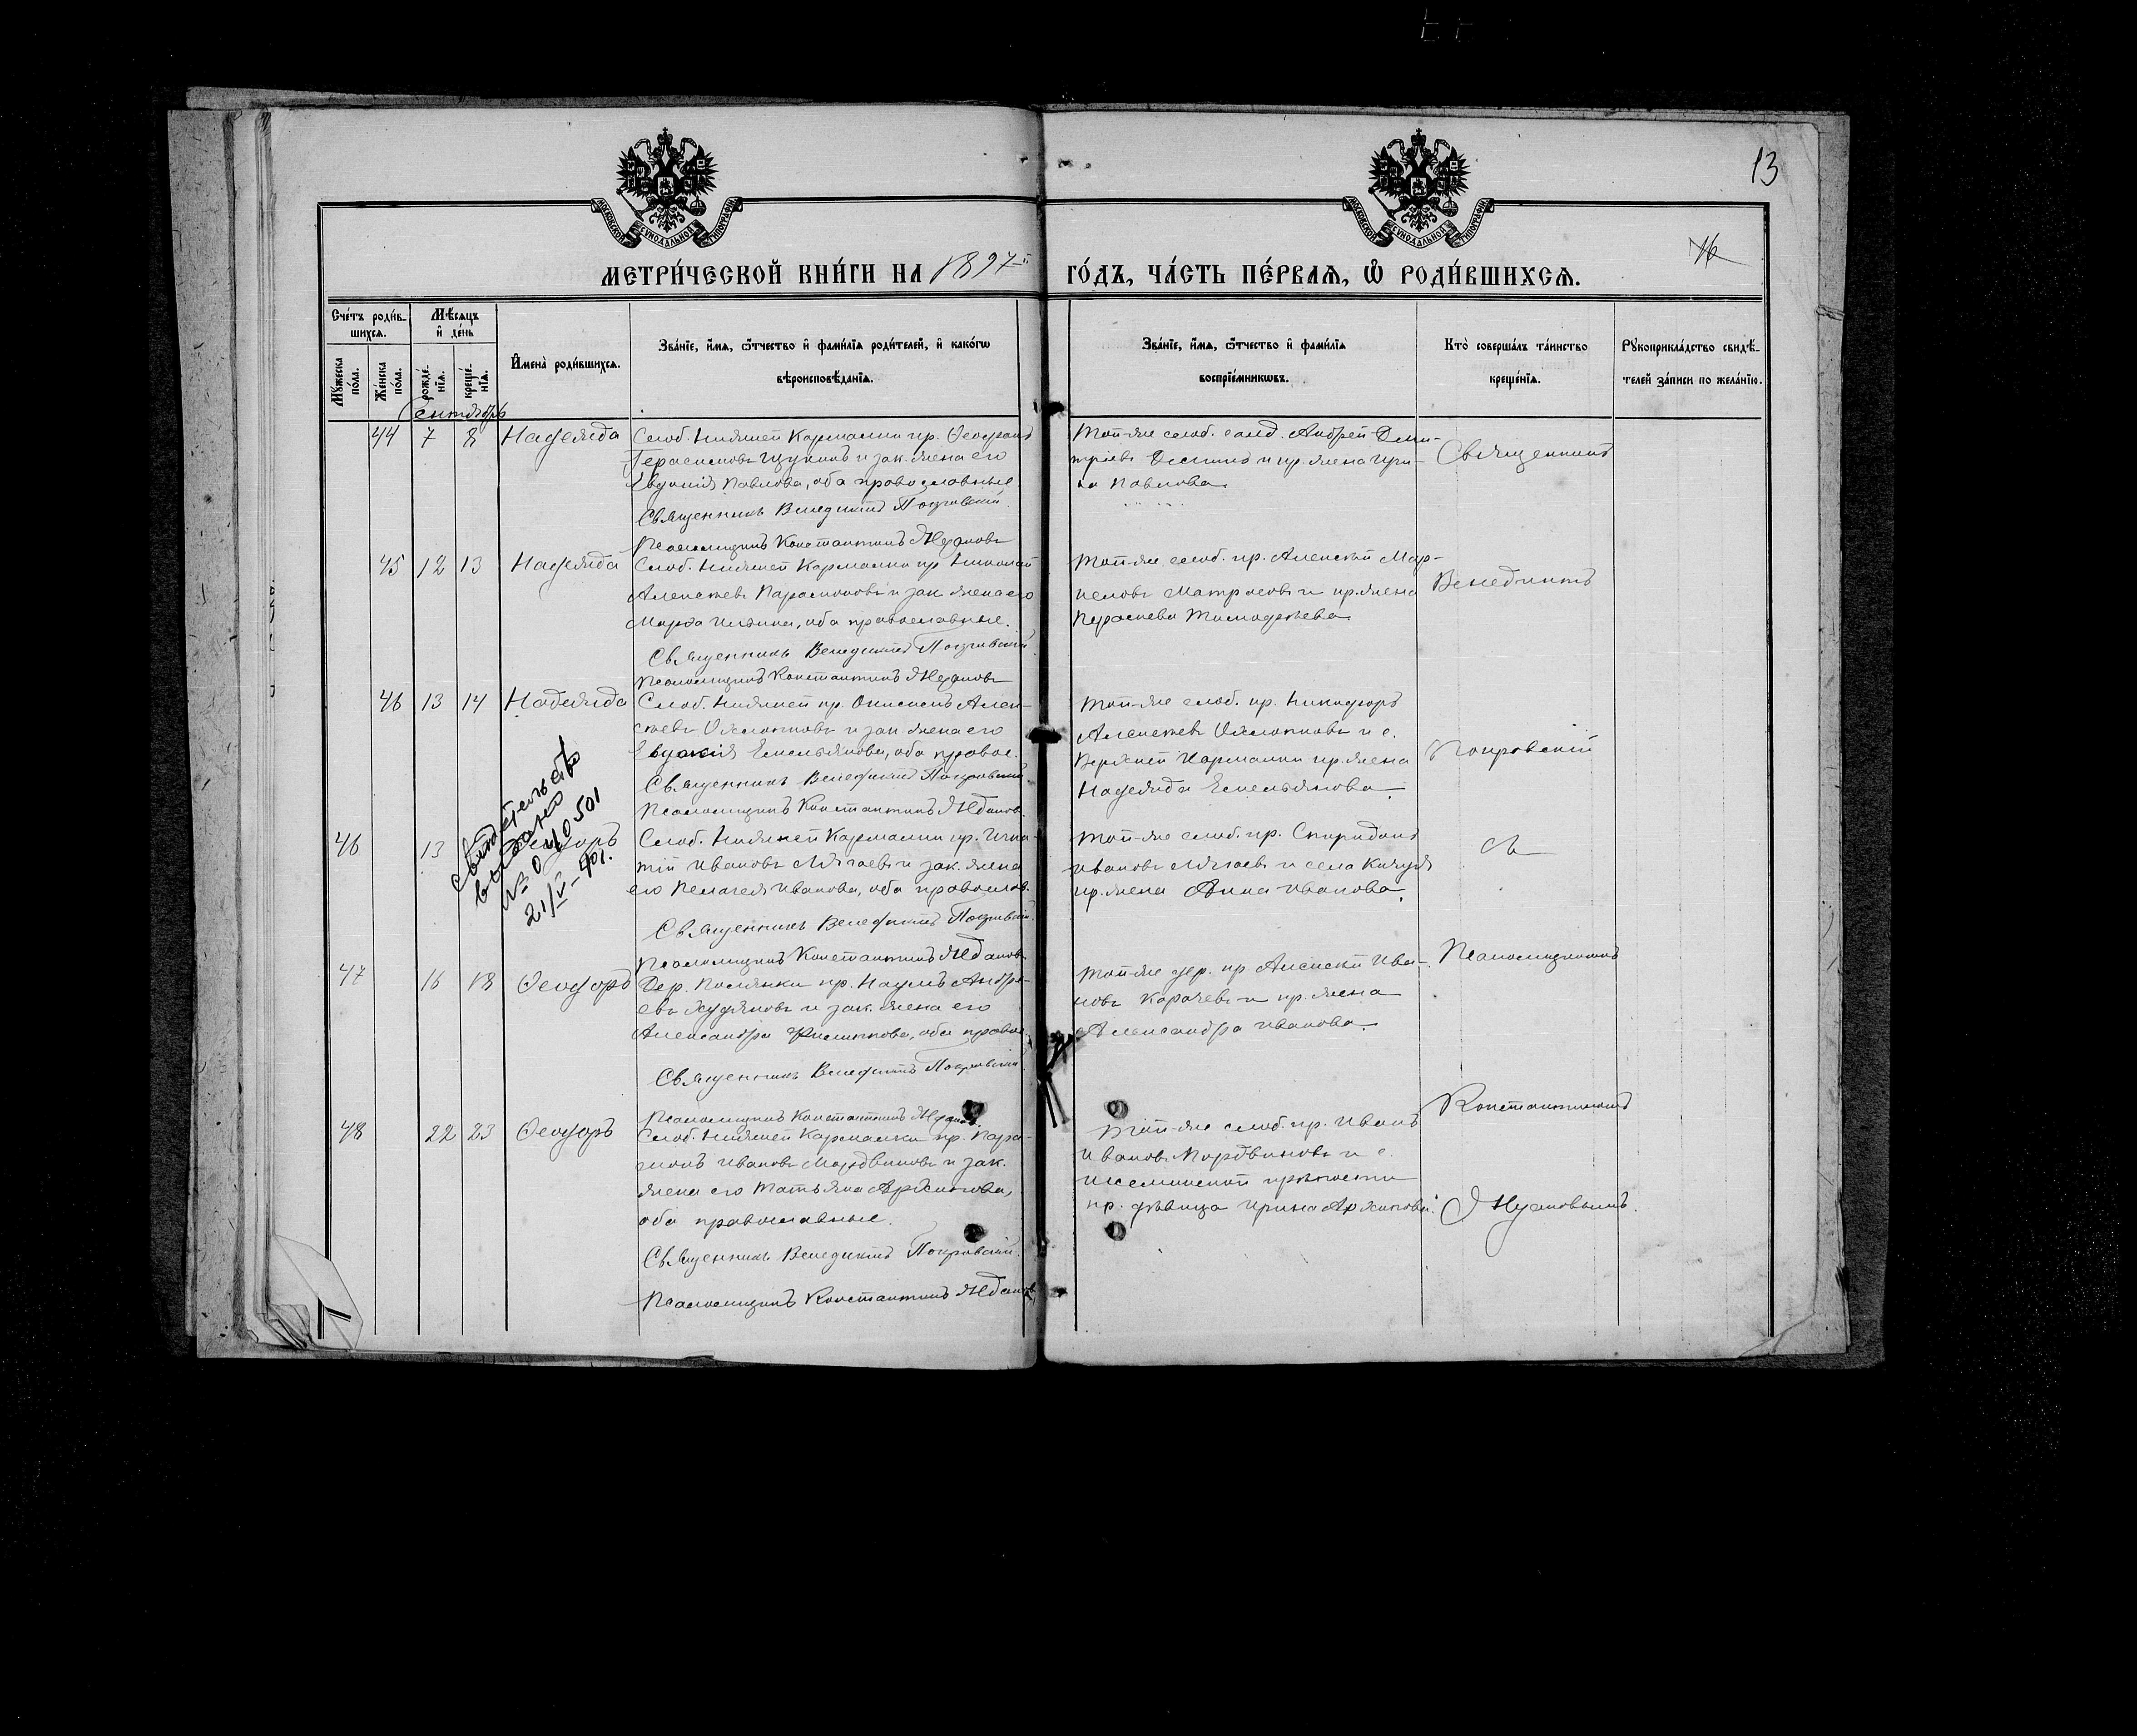 13
16
МОСКОВСКОЙ СѴНОДАЛЬНОЙ ТИПОГРАФІИ
МОСКОВСКОЙ СѴНОДАЛЬНОЙ ТИПОГРАФІИ
МЕТРИ́ЧЕСКОЙ КНИ́ГИ НА 1897й ГО́ДЪ, ЧА́СТЬ ПЕ́РВАѦ, Ѡ҆ РОДИ́ВШИХСѦ.
Сче́тъ роди́в-
шихсѧ.
Мꙋ́жеска по́ла.
Же́нска по́ла.
Мѣ́сѧцъ и҆ де́нь
рожде́-нїѧ.
креще́-нїѧ.
И҆мена̀ роди́вшихсѧ.
Зва́нїе, и҆́мѧ, ѻ҆́тчество и҆ фами́лїѧ роди́телей, и҆ како́гѡ
вѣроисповѣ́данїѧ.
Зва́нїе, и҆́мѧ, ѻ҆́тчество и҆ фами́лїѧ
воспрїе́мникѡвъ.
Кто̀ соверша́лъ та́инство
креще́нїѧ.
Рꙋкоприкла́дство свидѣ́-
телей за́писи по жела́нїю.
Сентябрь
44 7 8 Надежда
Слоб. Нижней Кармалки кр. Феофанъ
Герасимовъ Щукинъ и зак. жена его
Евдокія Павлова, оба православные
Священникъ Венедиктъ Покровскій.
Псаломщикъ Константинъ Ждановъ
Той-же слоб. солд. Андрей Дими-
тріевъ и кр. жена Ири-
на Павлова.
Священникъ
45 12 13 Надежда
Слоб. Нижней Кармалки кр. Николай
Алексѣевъ Парамоновъ и зак. жена его
Марѳа Ильина, оба православные.
Священникъ Венедиктъ Покровскій.
Псаломщикъ Константинъ Ждановъ
Той-же слоб. кр. Алексѣй Мар-
келовъ Матросовъ и кр. жена
Параскева Тимофѣева.
Венедиктъ
46 13 14 Надежда
Слоб. Нижней кр. Алек-
сѣевъ и зак. жена его
Евдокія Емельянова, оба правос.
Священникъ Венедиктъ Покровскій
Псаломщикъ Константинъ Ждановъ.
Той-же слоб. кр. Никифоръ
Алексѣевъ и с.
Верхней Кармалки кр. жена
Надежда Емельянова.
Покровскій
Свидѣтельство
выдано
21/V-901.
46 13
Слоб. Нижней Кармалки кр. Игна-
тій Ивановъ и зак. жена
его Пелагея Иванова, оба православ.
Священникъ Венедиктъ Покровскій.
Псаломщикъ Константинъ Ждановъ.
Той-же слоб. кр. Спиридонъ
Ивановъ и села Кичуя
кр. жена Анна Иванова.
съ
47 16 18 Феодоръ
Дер. Полянки кр. Наумъ Андре-
евъ Худяковъ и зак. жена его
Александра Филиппова, оба правос.
Священникъ Венедиктъ Покровскій.
Псаломщикъ Константинъ Ждановъ.
Той-же дер. кр. Алексѣй Ива-
новъ Карачевъ и кр. жена
Александра Иванова.
Псаломщикомъ
48 22 23 Феодоръ
Слоб. Нижней Кармалки кр. Пара-
монъ Ивановъ Мордвиновъ и зак.
жена его Татьяна Архипова,
оба православные.
Священникъ Венедиктъ Покровскій.
Псаломщикъ Константинъ Ждановъ
Той-же слоб. кр. Иванъ
Ивановъ Мордвиновъ и с.
крѣпости
кр. дѣвица Ирина Архипова.
Константиномъ
Ждановымъ.